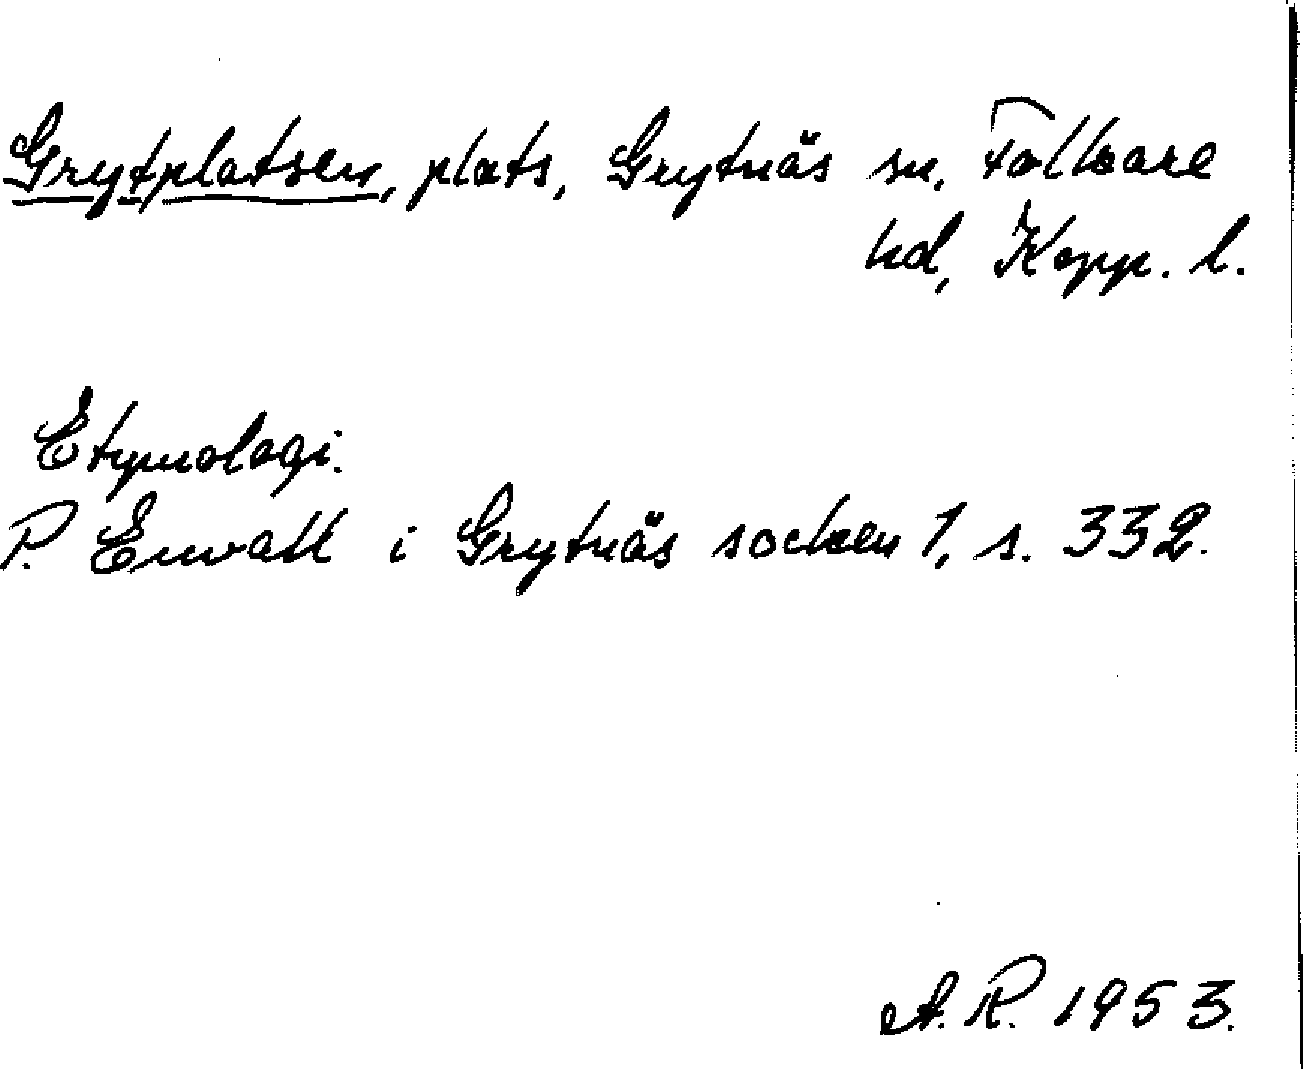 Grytplatsen, plats, Grytnäs sn, Folkare
hd, Kopp. l.
Etymologi.
P. Envall i Grytnäs socken 1, s. 332.
A. R. 1953.